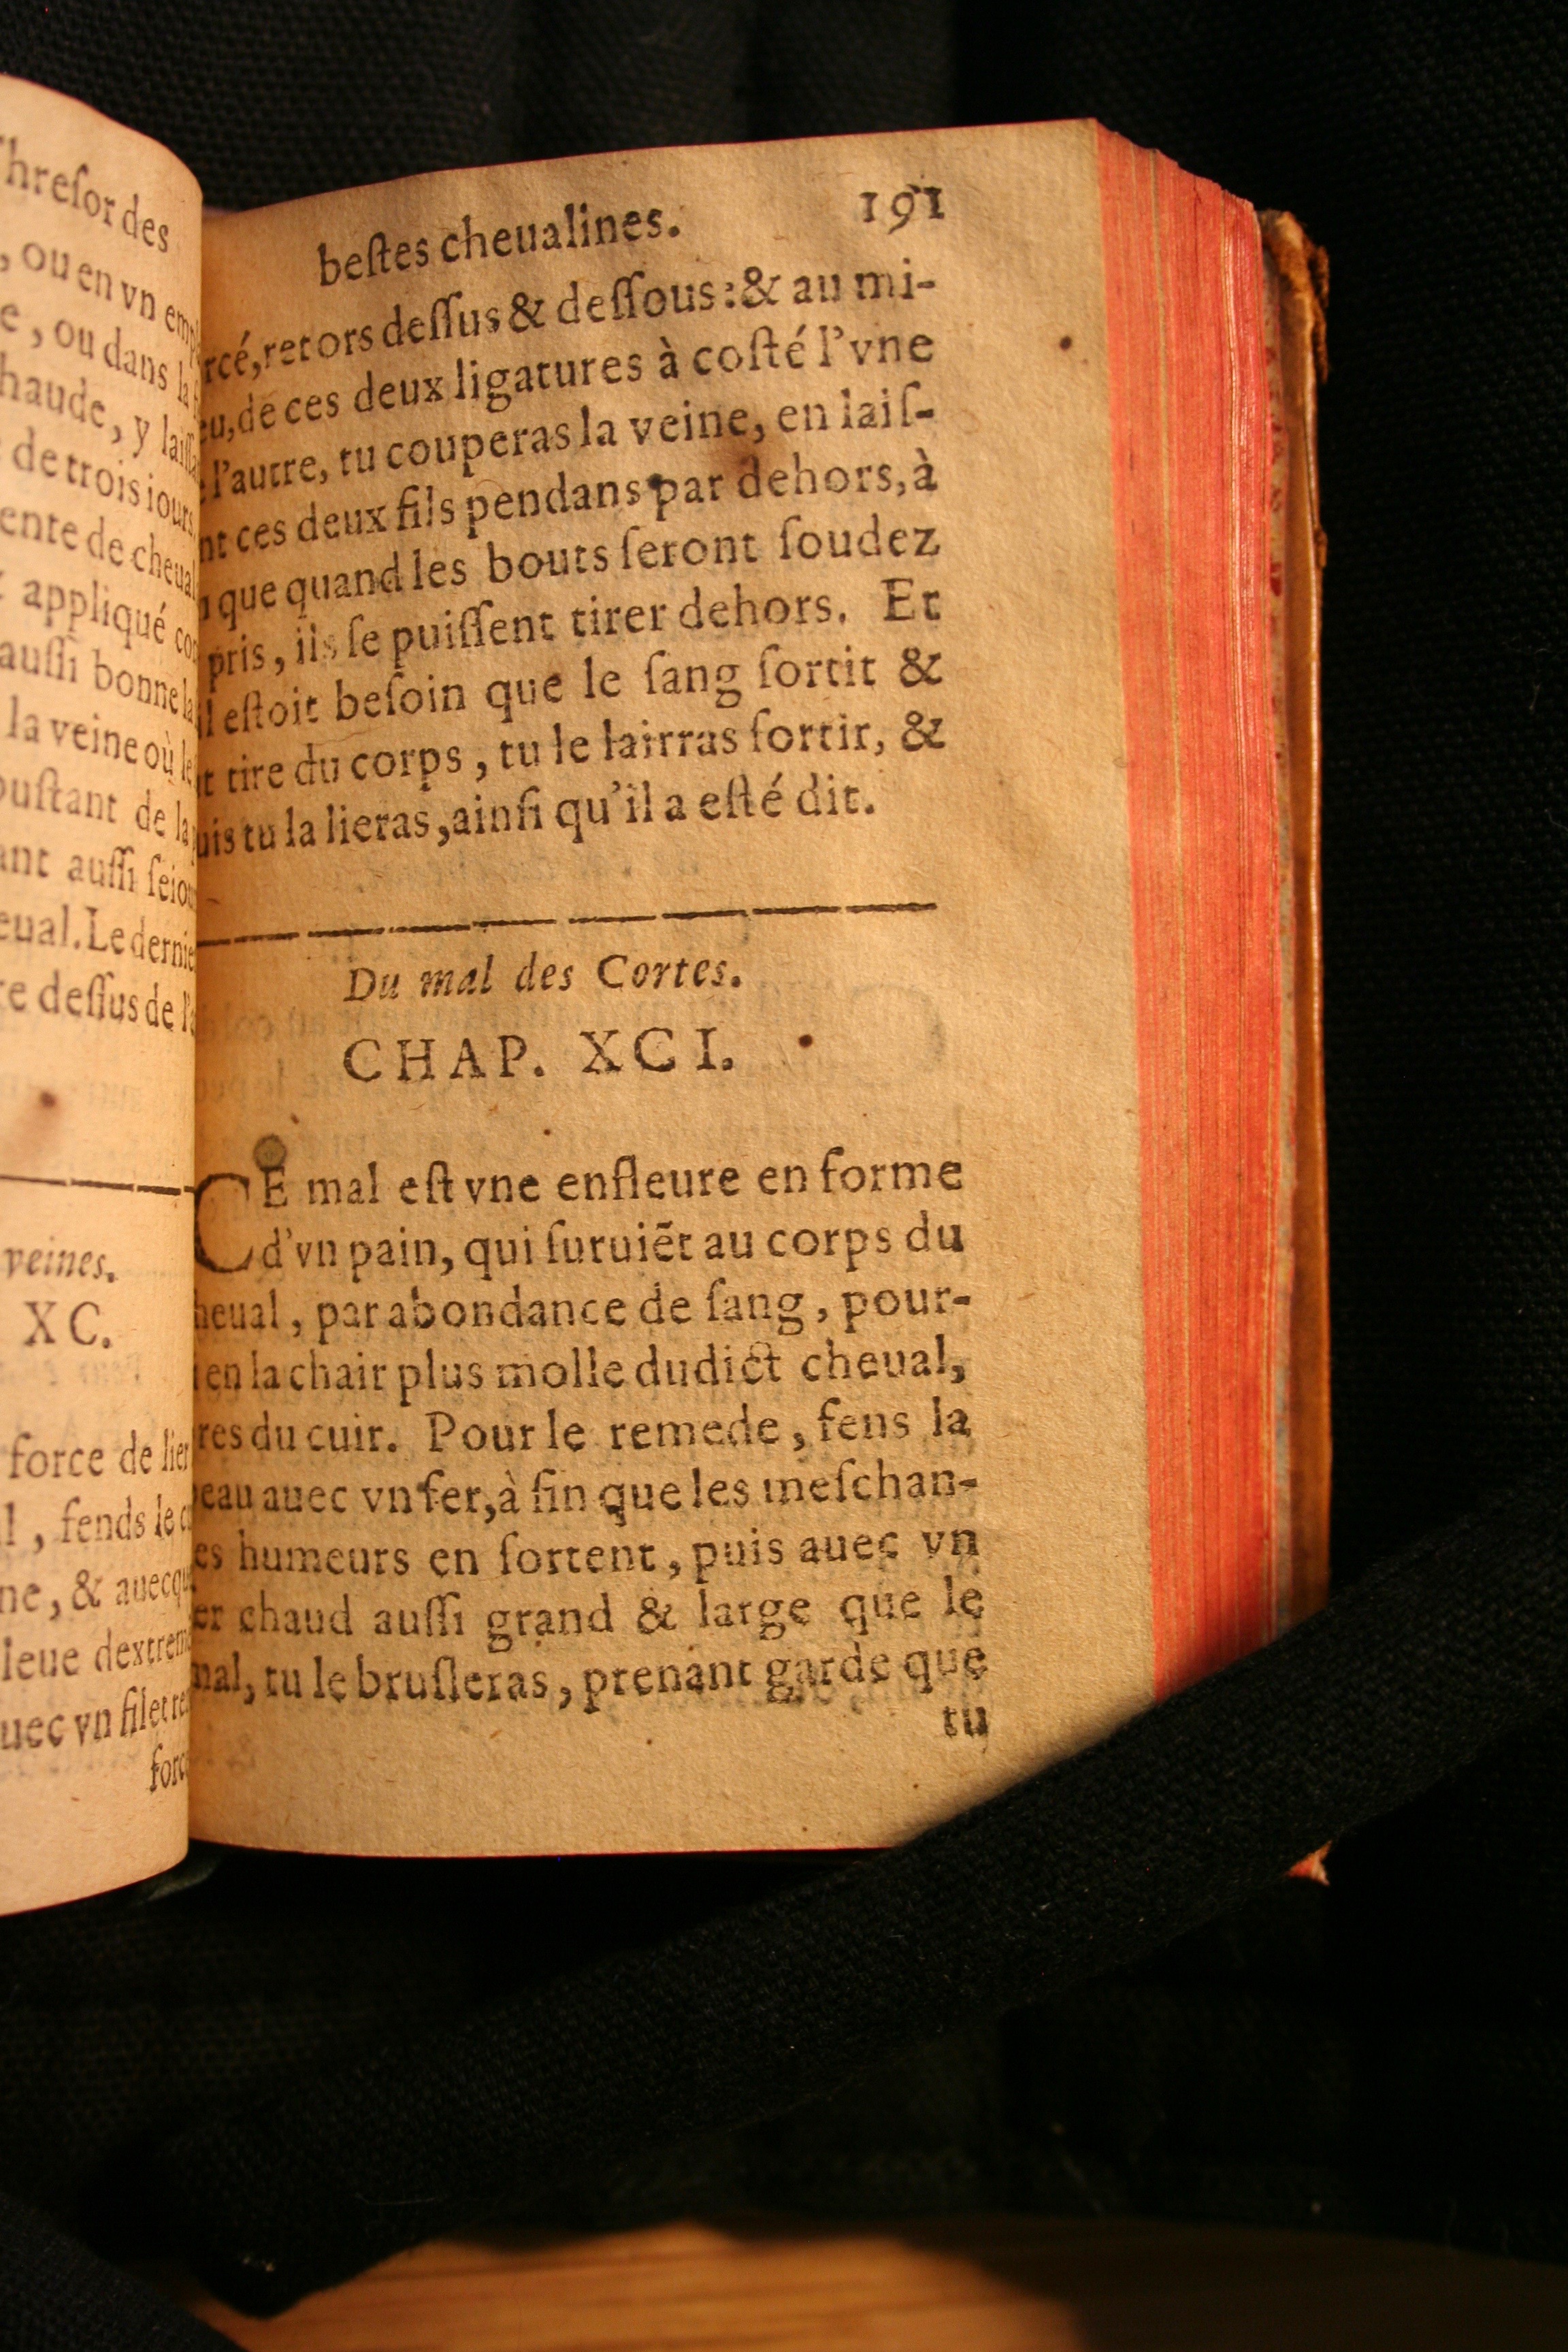 hreſor des
, ou en vn
e, ou dans
haude, y
de trois iours
ente de cheual
appliqué
auſſi bonne la
la veine où
ouſtant de la
ant auſſi
eual. Le dernie
re deſſus de l'
veines.
XC.
force de lier
l, fends le
ne, & auecq
leue dextrem
uec vn filet
forc
beſtes cheualines. 191
rcé, retors deſſus & deſſous : & au mi-
eu, de ces deux ligatures à coſté l'vne
l'autre, tu couperas la veine, en laiſ-
nt ces deux fils pendans par dehors, à
que quand les bouts ſeront ſoudez
pris, ils ſe puiſſent tirer dehors. Et
il eſtoit beſoin que le ſang ſortit &
t tire du corps, tu le lairras ſortir, &
uis tu la lieras, ainſi qu'il a eſté dit.
Du mal des Cortes.
CHAP. XCI.
CE mal eſt vne enfleure en forme
d'vn pain, qui ſuruiẽt au corps du
heual, par abondance de ſang, pour-
en la chair plus molle dudict cheual,
res du cuir. Pour le remede, fens la
eau auec vn fer, à fin que les meſchan-
es humeurs en ſortent, puis auec vn
er chaud auſſi grand & large que le
mal, tu le bruſleras, prenant garde que
tu